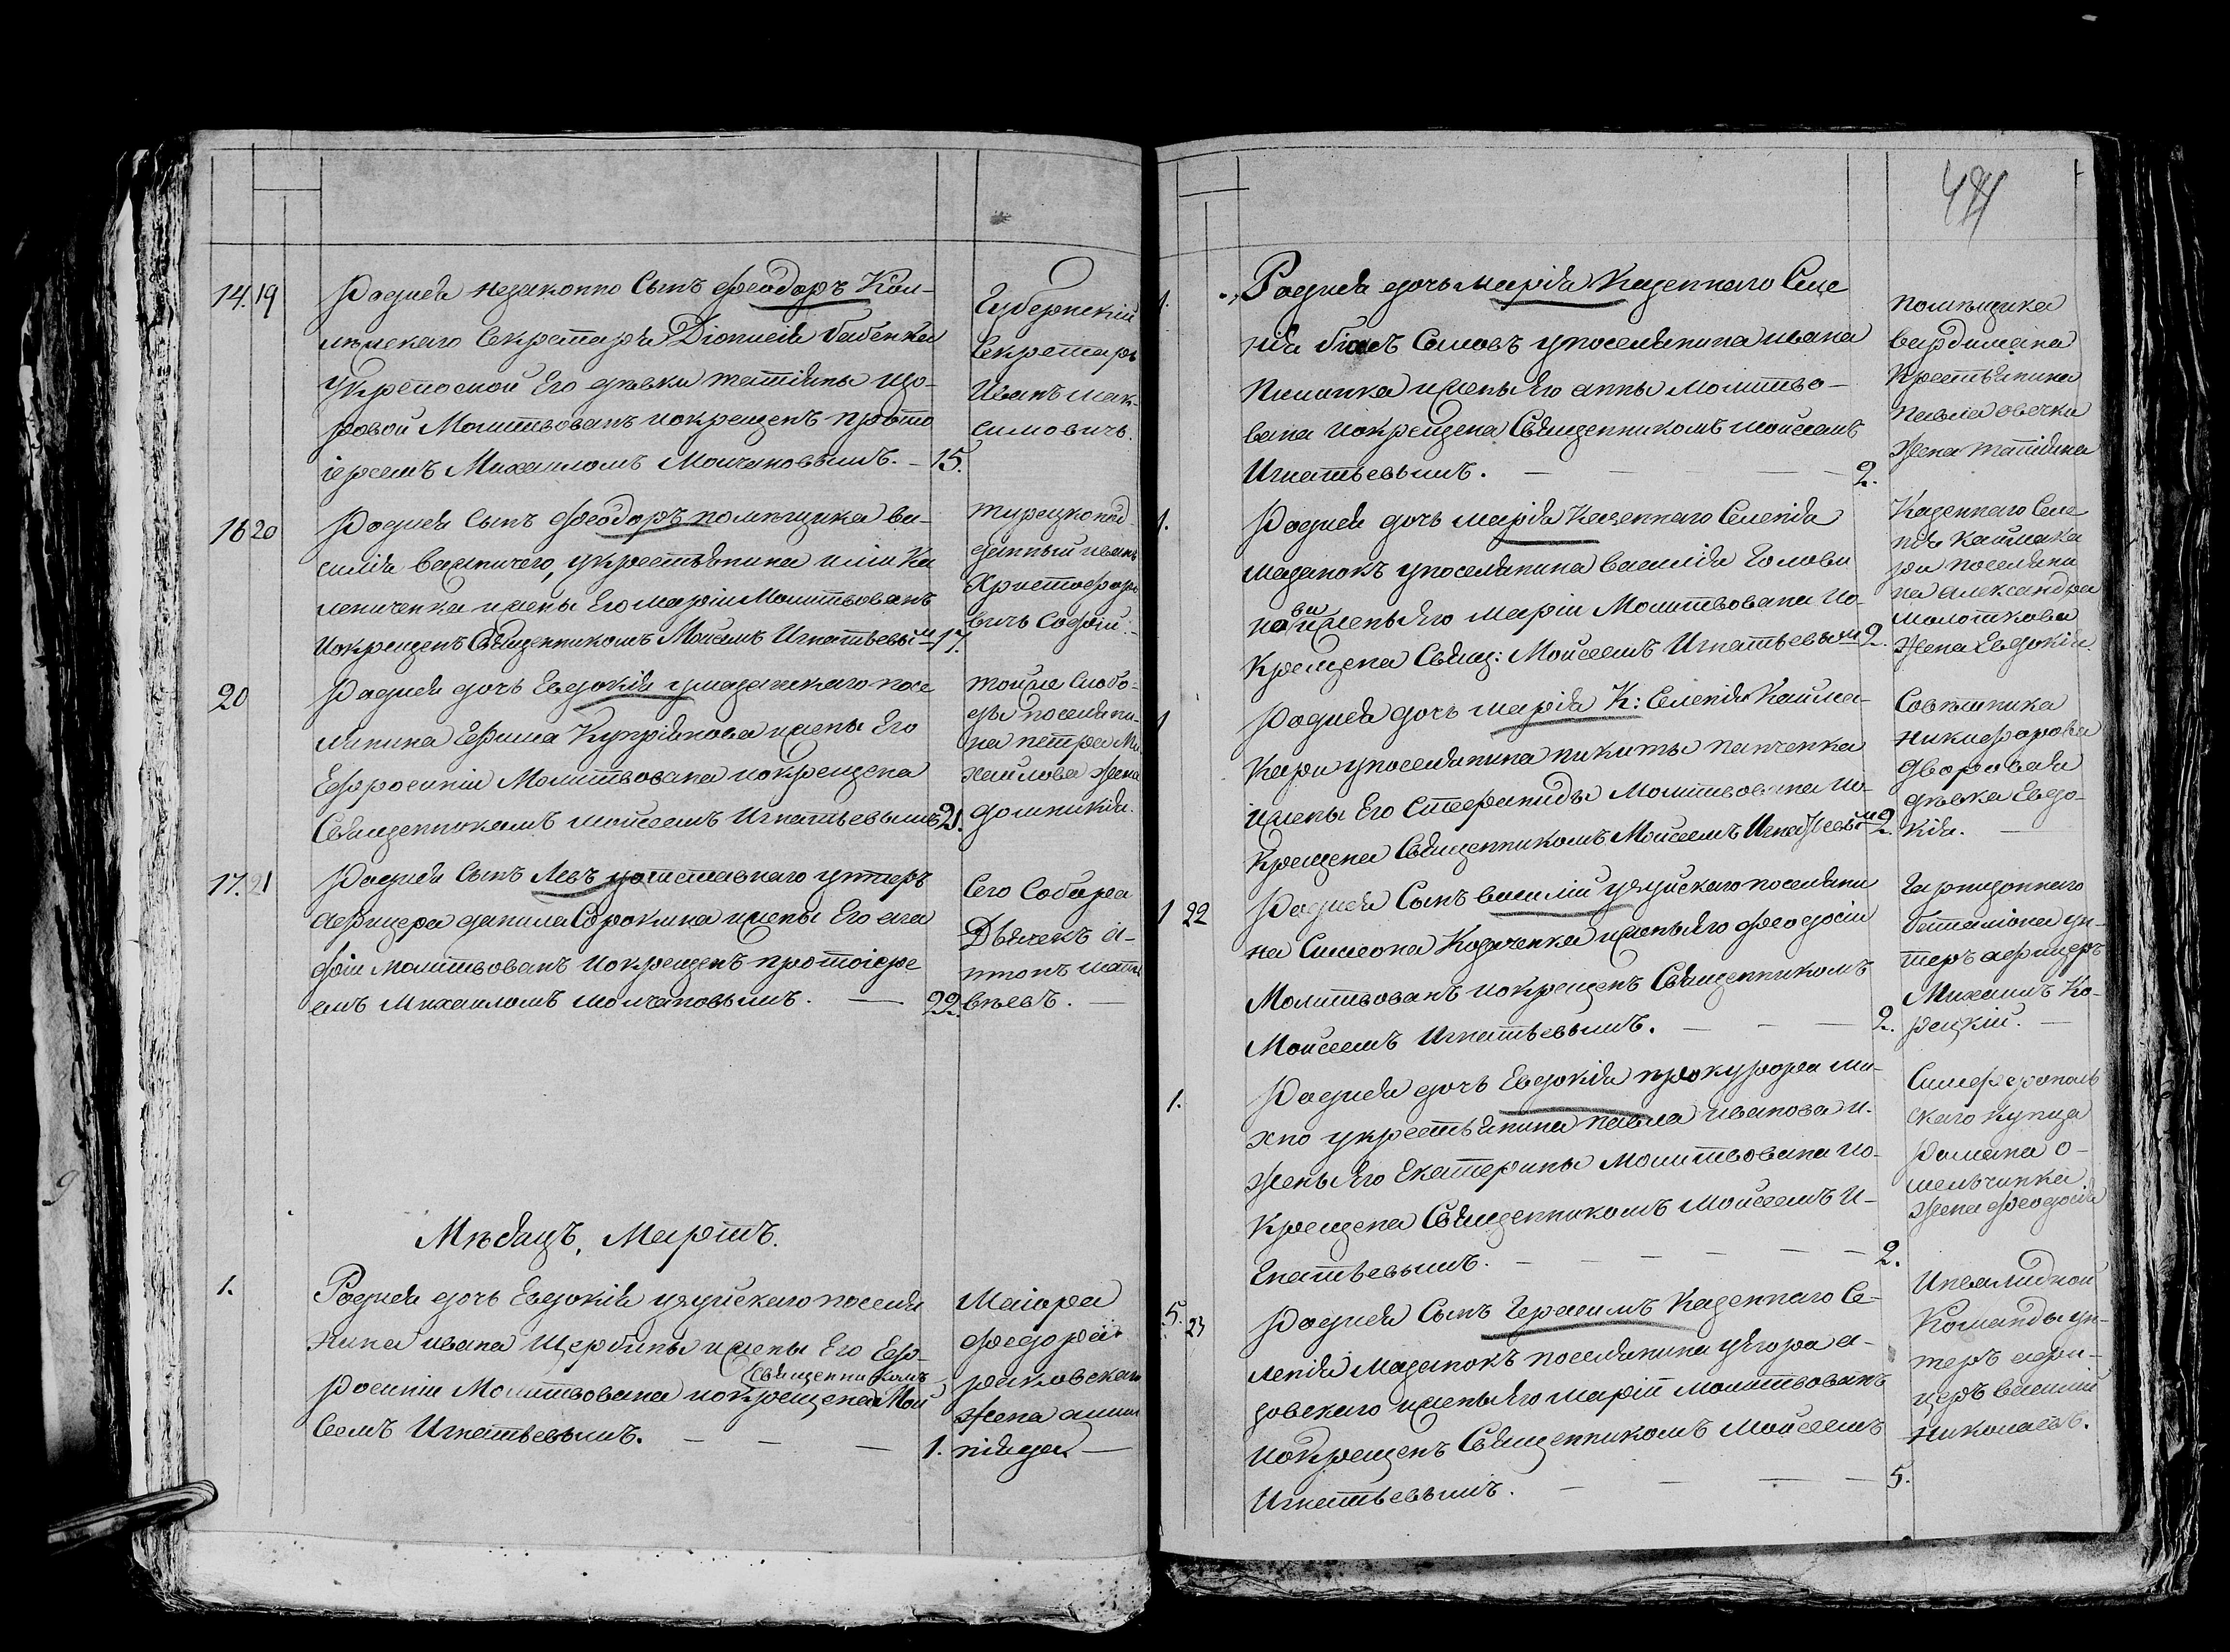 14. 19
Родися незаконно Сынъ Феодоръ Кол-
лѣжскаго Секретаря Діонисія бабенка
укрепосной Его дѣвки татіяны що-
ровой Молитвованъ и окрещенъ прото
іереемъ Михаиломъ Молчановымъ. – 15.
Губернскій
Секретарь
Иванъ мак-
симовичь.
16 20
Родися Сынъ Феодоръ помѣщика ва-
силія
укрестьянина иліи Ка
лениченка и жены Его маріи Молитвованъ
И окрещенъ Священникомъ Мойсеемъ Игнатьевым 17.
турецкопод-
данный иванъ
Христофоро
вичь Софой. –
20
Родися дочь Евдокія умазанскаго посе
лянина Ефима Купріянова и жены Его
Ефросиніи Молитвована и окрещена
Священникомъ мойсеемъ Игнатьевымъ 21.
тойже слобо-
ды поселяни-
на петра Ми
хайлова жена
домникія.
17. 21
Родися Сынъ Левъ уотставнаго унтеръ
афицера данила Сорокина и жены Его ага
фіи Молитвованъ и окрещенъ протоіере
емъ Михаиломъ молчановымъ. — 22.
Сего Собора
Дьячекъ а-
нтонъ мат
вѣевъ. —
Мѣсяцъ, Мартъ.
1.
Родися дочь Евдокія
поселя
нина ивана Щербины и жены Его Ефр-
Священникомъ
росиніи Молитвована и окрещена Мой
Сеемъ Игнатьевымъ. – – – 1.
Маіора
федора
раковскаго
жена

484
1.
Родися дочь марія Казеннаго Селе
нія
упоселянина ивана
и жены Его анны молитво-
вана и окрещена Священникомъ мойсеемъ
Игнатьевымъ. – – – 2.
помѣщика
вардимана
Крестьянина
павла овечки
жена татіяна
1.
Родися дочь марія Казеннаго Селенія
Мазанокъ упоселянина василія Голови
на и жены Его маріи Молитвована и о-
крещена Свящ: Мойсеемъ Игнатьевым 2.
Казеннаго Селе
нія Каймака
ры поселяни
на александра
молоткова
жена Евдокія.
1
Родися дочь марія К: Селенія Кайма-
кары упоселянина никиты панченка
и жены Его Стефаниды Молитвована и о-
крещена Священникомъ Мойсеемъ Игнатьевым 2.
Совѣтника
никифорова
дворовая
дѣвка Евдо-
кія. —
1 22
Родися Сынъ василій
поселяни
на Симеона Козаченка и жены Его Феодосіи
Молитвованъ и окрещенъ Священникомъ
Мойсеемъ Игнатьевымъ. – – – 2.
Гарнизоннаго
баталіона ун-
теръ афицеръ
Михаилъ Ко-
рецкій. —
1.
Родися дочь Евдокія прокурора ми-
хно укрестьянина павла иванова и-
жены Его Екатерины молитвована и о-
крещена Священникомъ мойсеемъ И-
гнатьевымъ. – – – 2.
Симферополь
скаго купца
романа о-
мельчинка
жена феодосія
5. 23
Родися Сынъ Герасимъ Казеннаго Се-
ленія Мазанокъ поселянина Егора а-
зовскаго и жены Его маріи молитвованъ
и окрещенъ Священникомъ Мойсеемъ
Игнатьевымъ. – – – 5.
Инвалидной
Команды ун-
теръ афи-
церъ василій
николаевъ.